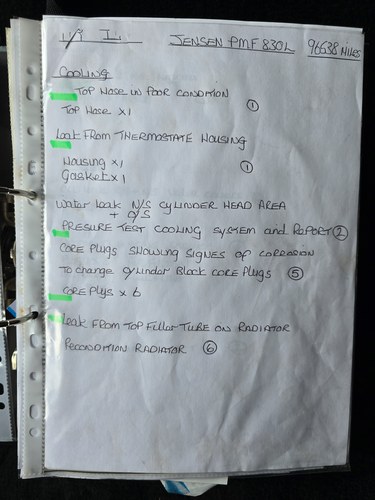 JENSEN PMF 830L 96638 MILES
COOLING
TOP HOSE IN POOR CONDITION
TOP HOSE X1 1
LEAK FROM THERMOSTATE HOUSING
HOUSING X1 1
GASKET X1
WATER LEAK N/S CYLINDER HEAD AREA
+ O/S
PRESURE TEST COOLING SYSTEM and REPORT 2
CORE PLUGS SHOWING SIGNES OF CORROSION
TO CHANGE CYLINDER BLOCK CORE PLUGS 5
CORE PLYS X 6
LEAK FROM TOP FILLER TUBE ON RADIATOR
RECONDITION RADIATOR 6